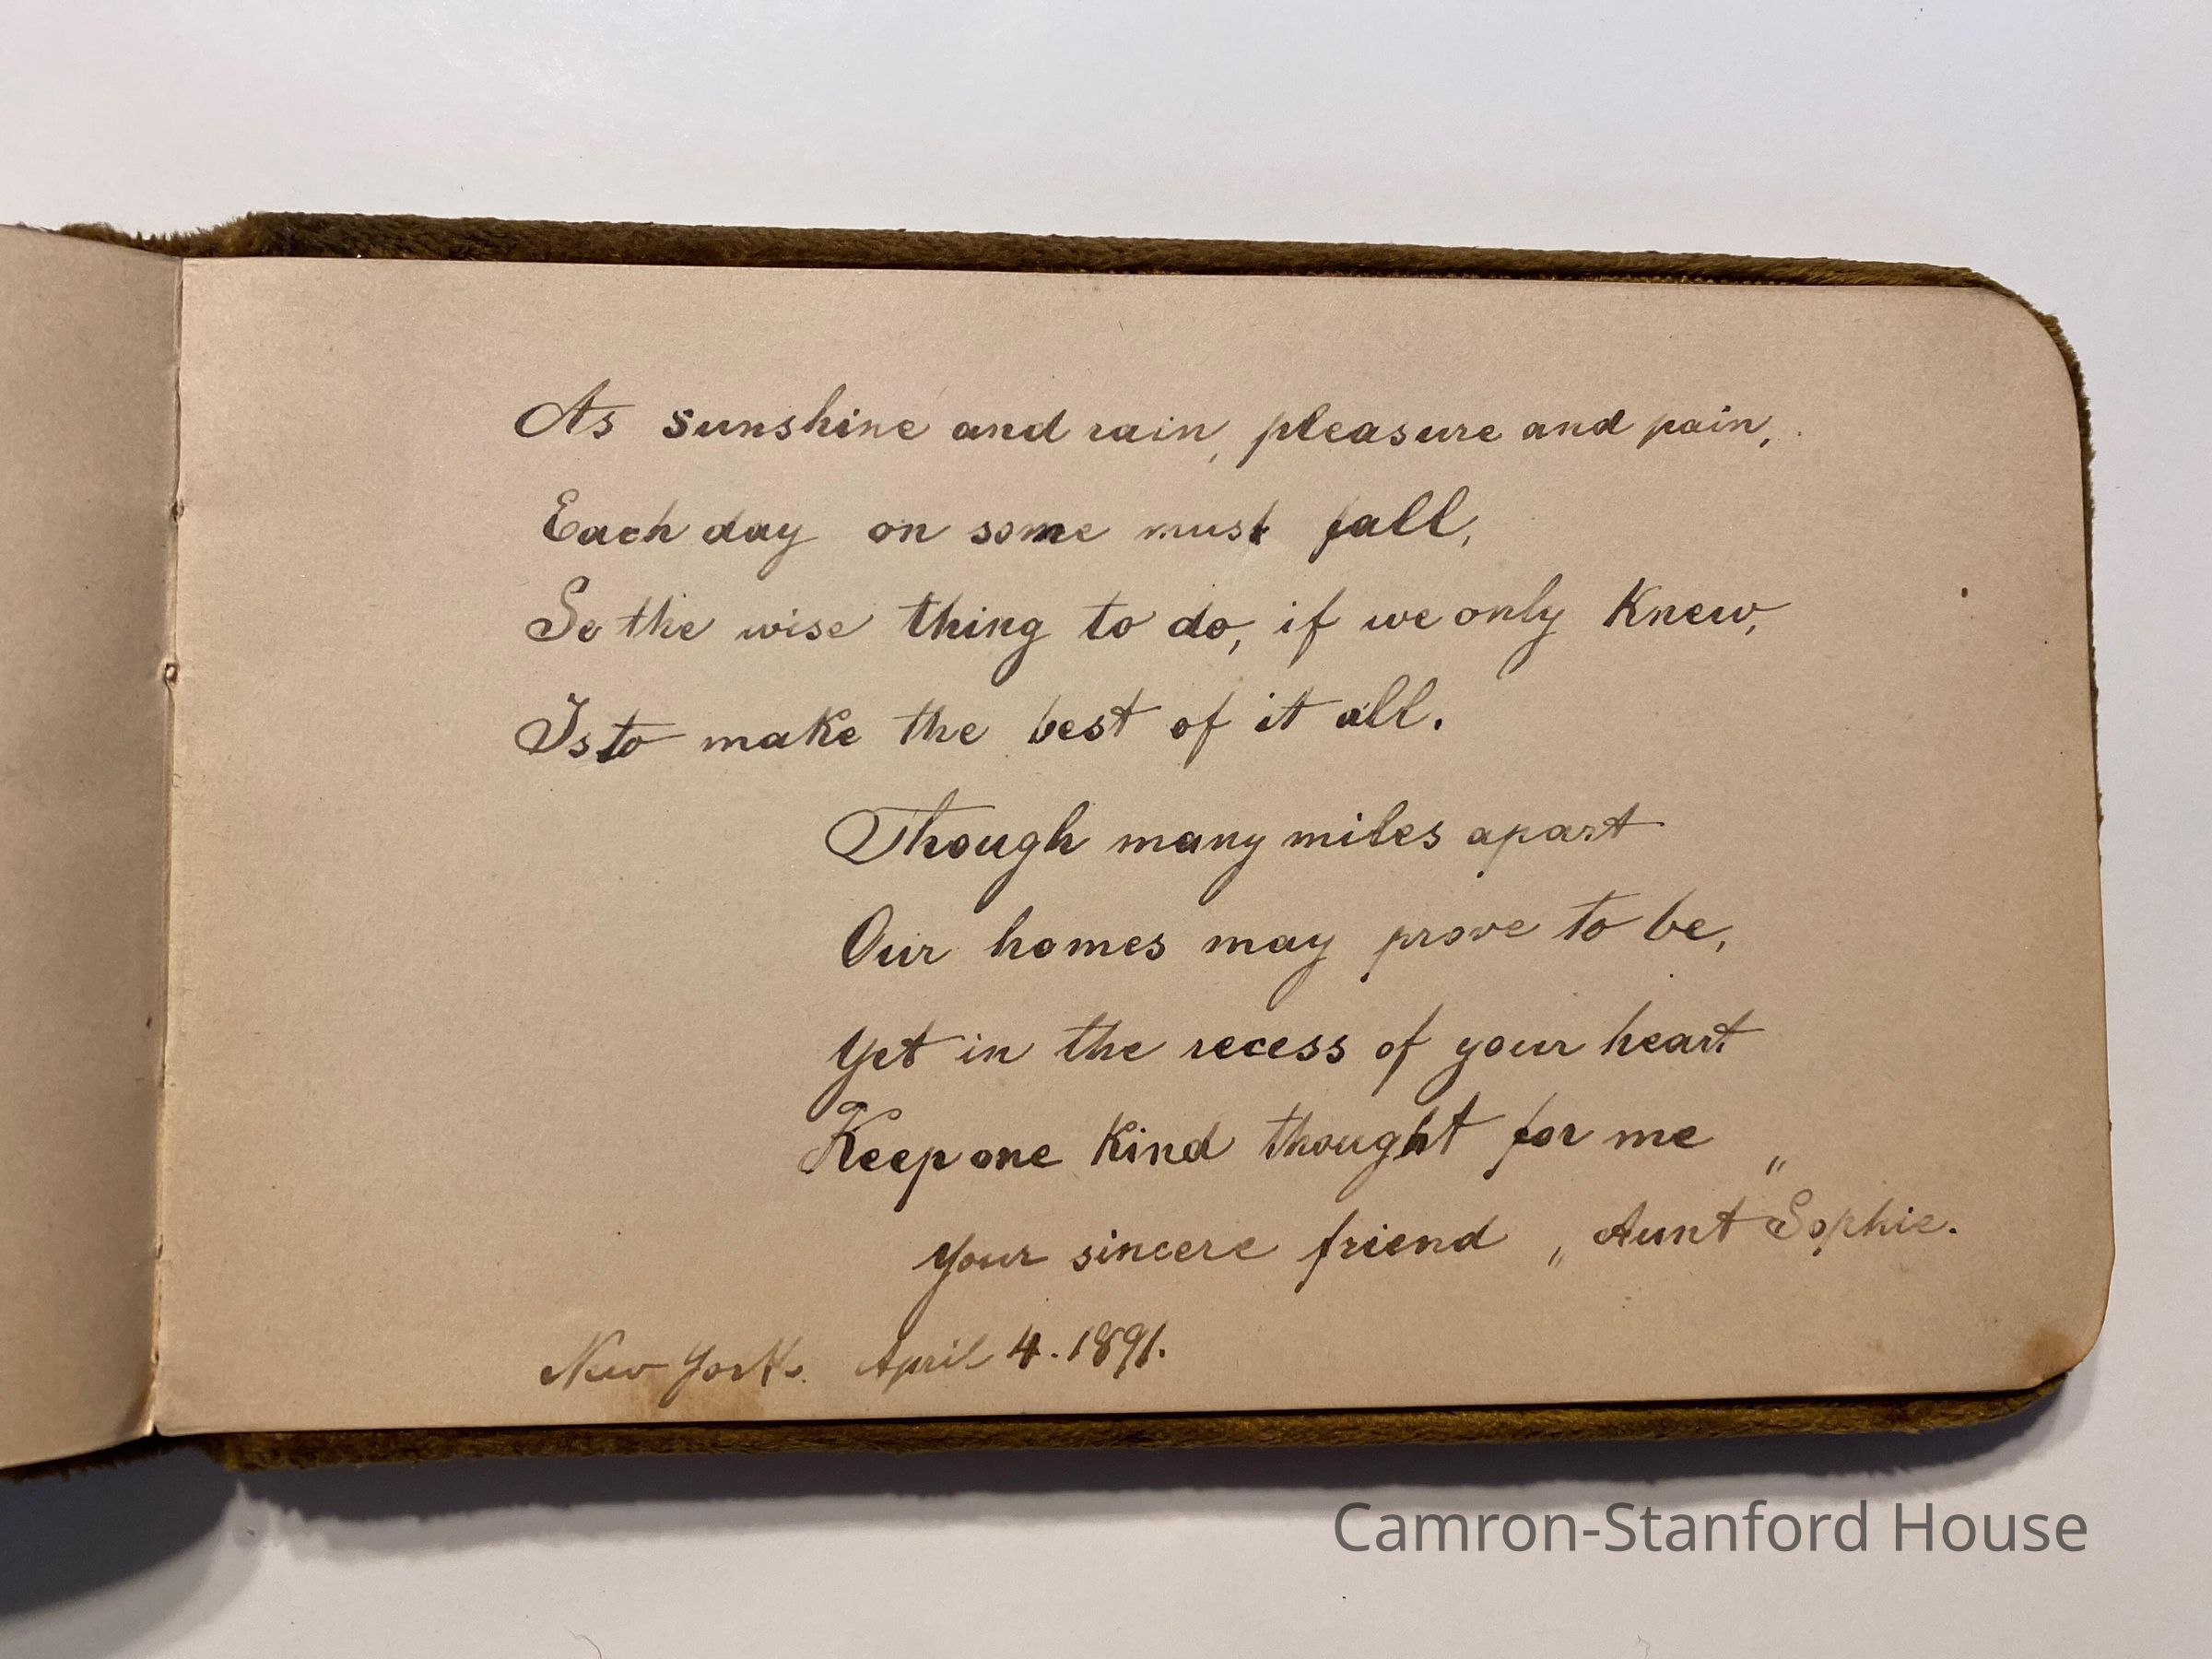 As sunshine and rain, pleasure and pain,
Each day on some must fall,
So the wise thing to do, if we only knew,
Is to make the best of it all.
Though many miles apart
Our homes may prove to be,
Yet in the recess of your heart
Keep one kind thought for me
Your sincere friend „Aunt Sophie.„
New York. April 4. 1891.
Camron-Stanford House